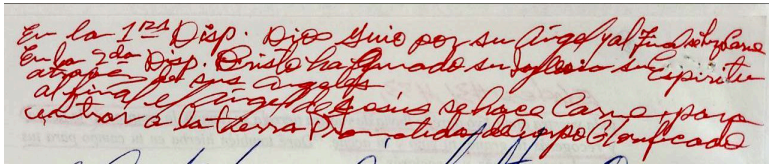 En la 1ra Disp. Dios Guio por su Angel y al Final se hizo Carne
En la 2da Disp. Cristo ha llamado su Iglesia su Espiritu
atraves de sus Angeles
al final el Angel de Jesús se hace Carne para
entrar a la tierra Prometida, al Cuerpo Glorificado